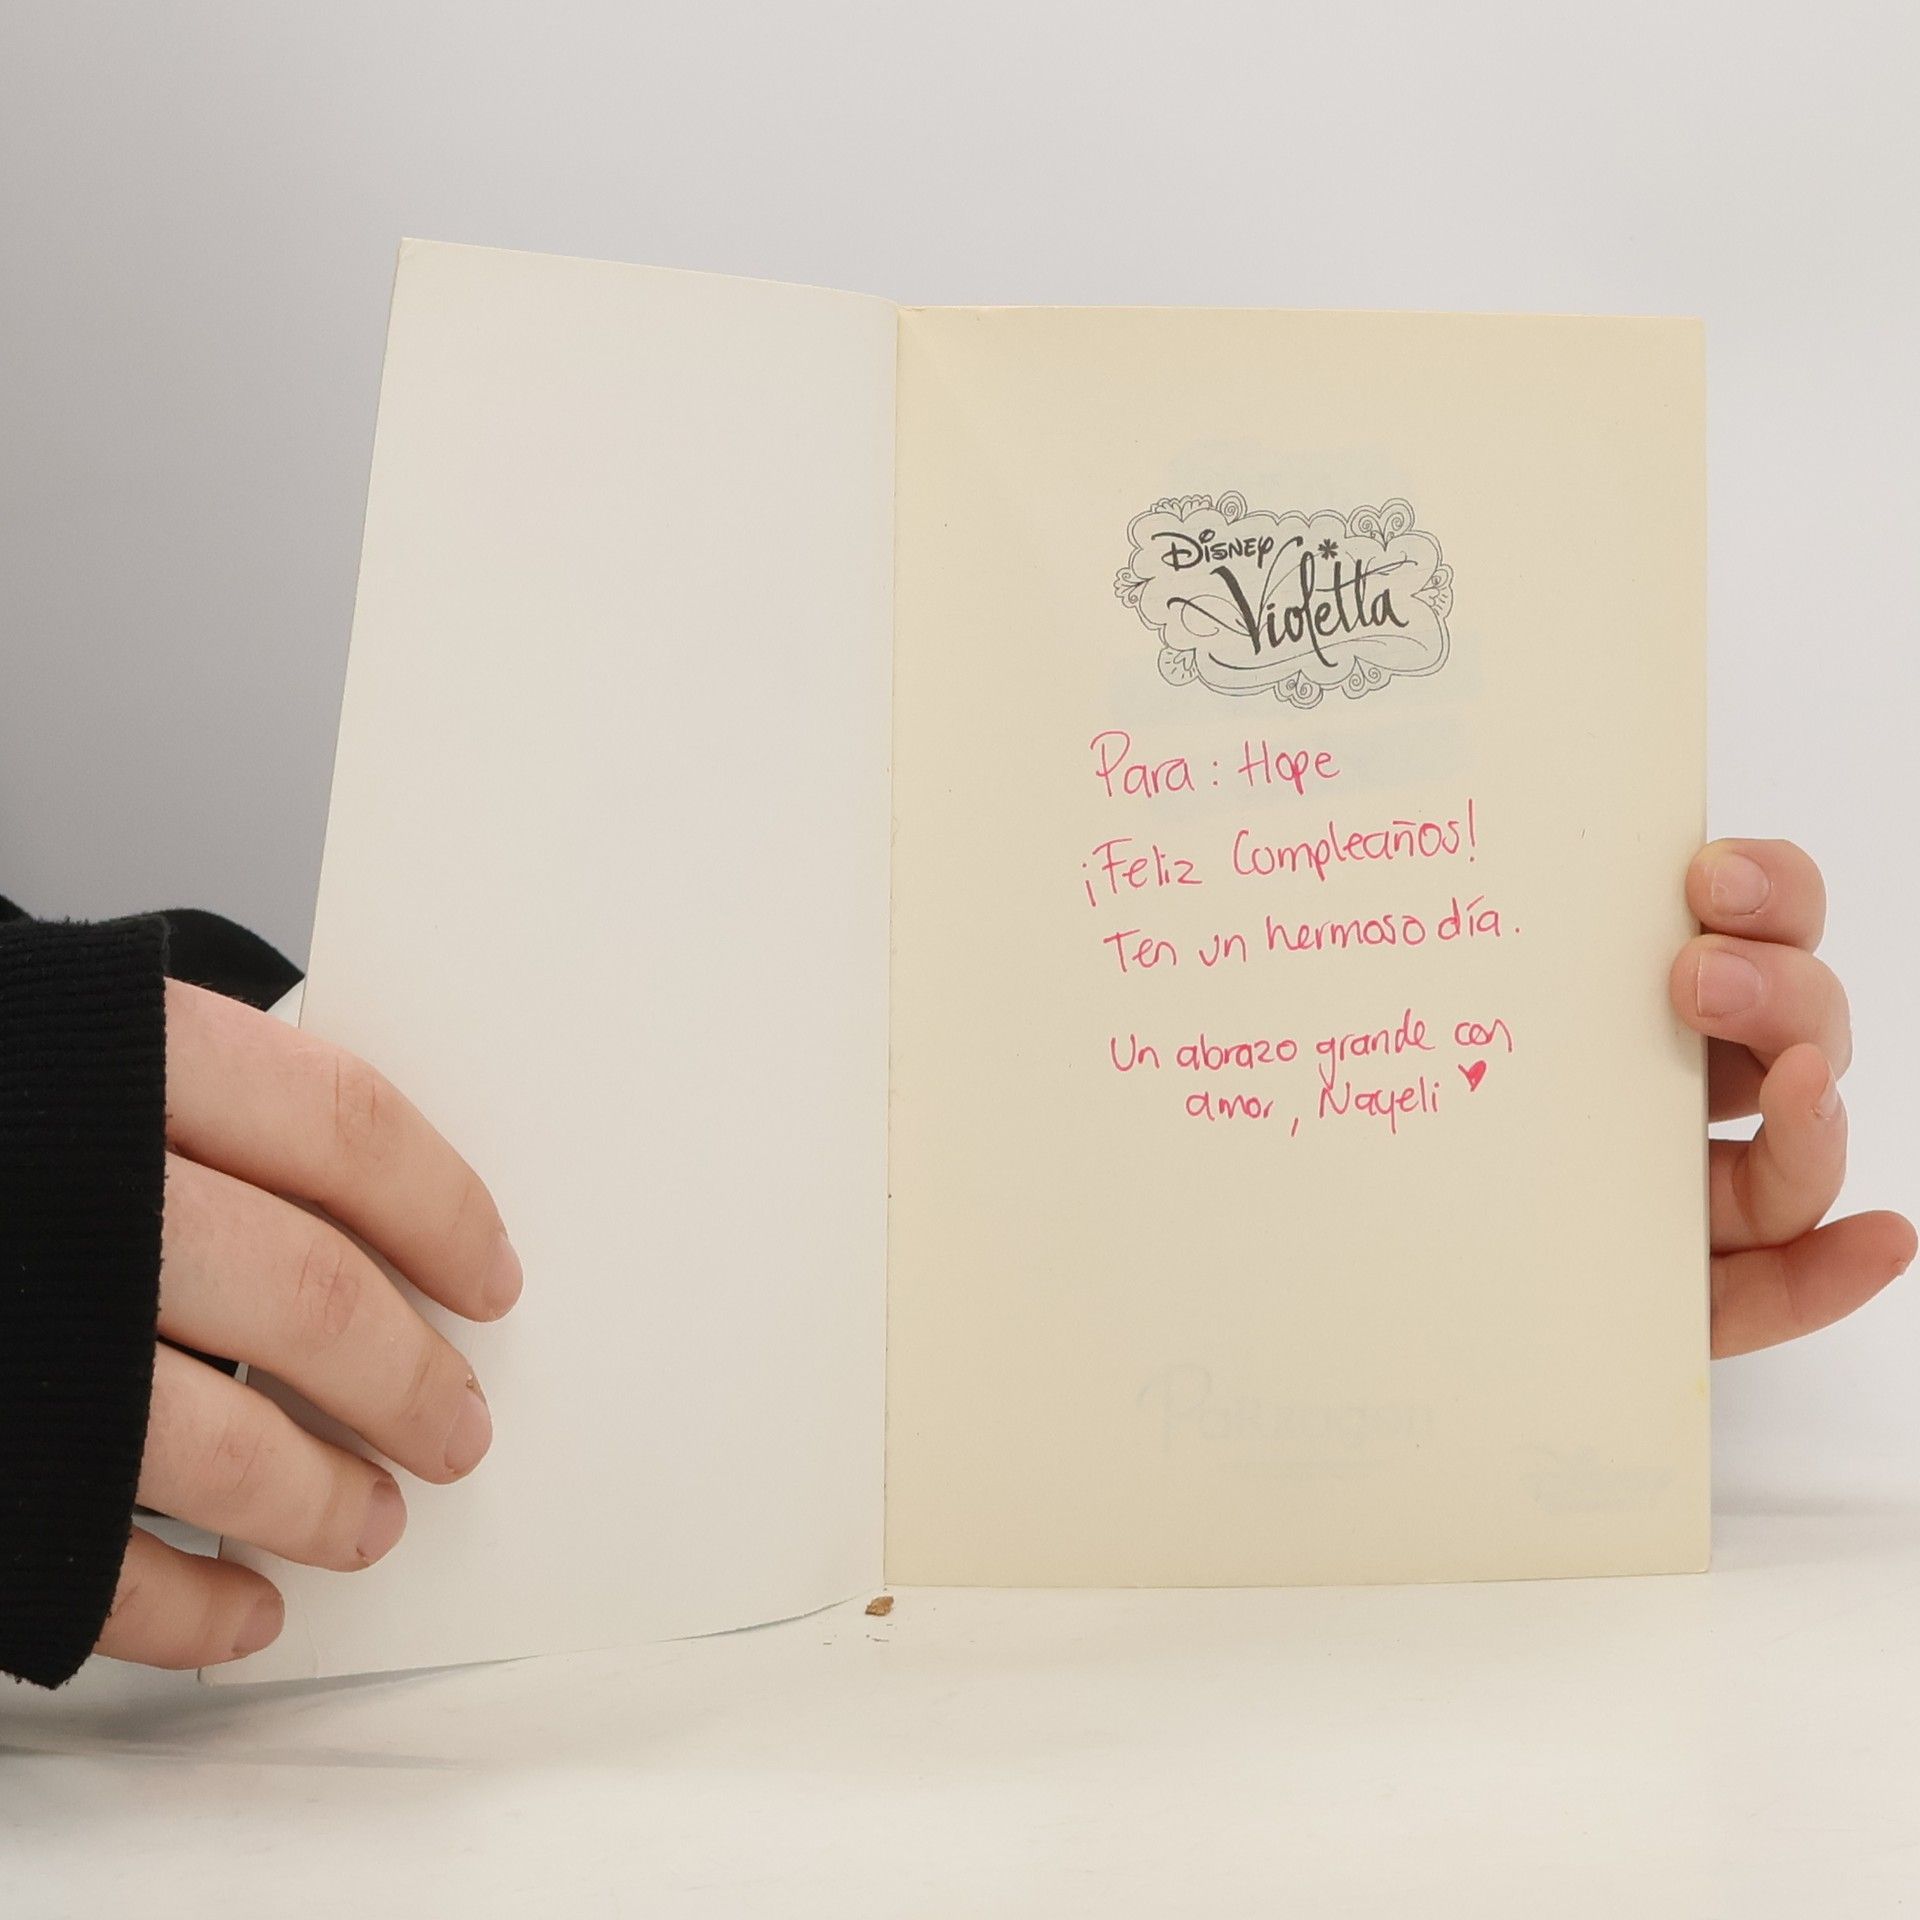 Disney
Violetta
Para: Hope
¡Feliz Cumpleaños!
Ten un hermoso día.
Un abrazo grande con
amor, Nayeli ♥